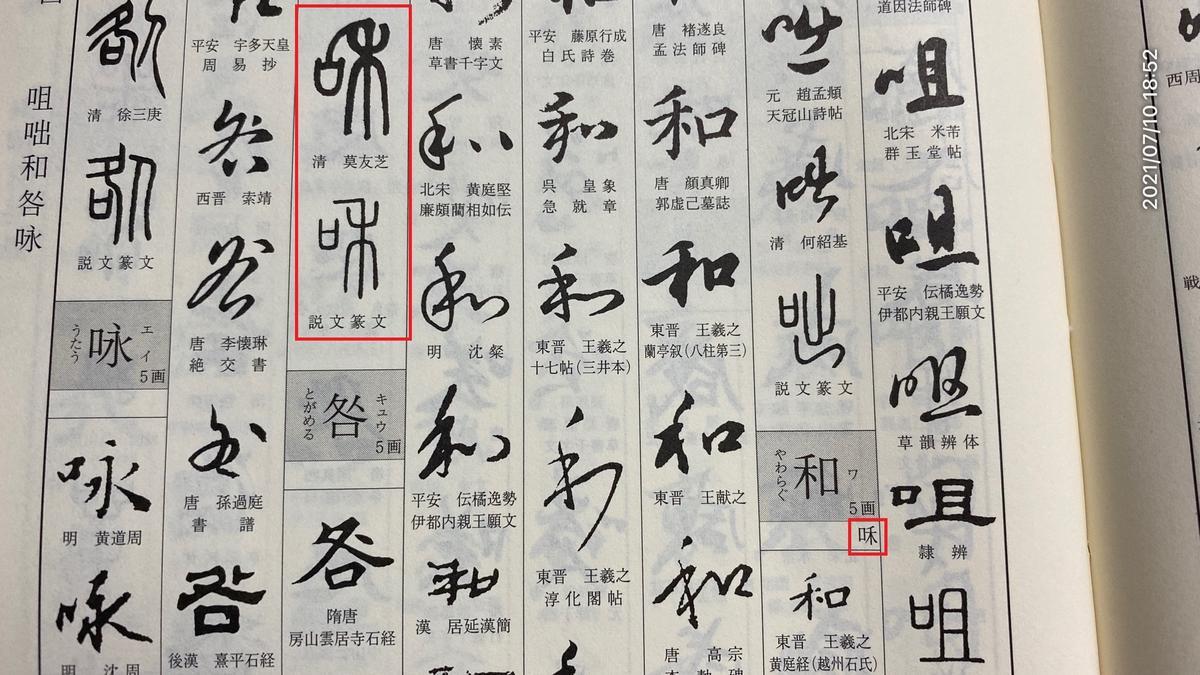 咀咄和咎咏
道因法師碑
咀
北宋 米芾
群玉堂帖
咀
平安 伝橘逸勢
伊都内親王願文
咀
草韻辨体
咀
隷辨
咀
咄
元 趙孟頫
天冠山詩帖
咄
清 何紹基
咄
説文篆文
和
ワ
やわらぐ
5画
咊
和
東晋 王羲之
黄庭経(越州石氏)
唐 褚遂良
孟法師碑
和
唐 顔真卿
郭虚己墓誌
和
東晋 王羲之
蘭亭叙(八柱第三)
和
東晋 王献之
和
唐 高宗
平安 藤原行成
白氏詩巻
和
呉 皇象
急就章
和
東晋 王羲之
十七帖(三井本)
和
東晋 王羲之
淳化閣帖
唐 懐素
草書千字文
和
北宋 黄庭堅
廉頗藺相如伝
和
明 沈粲
和
平安 伝橘逸勢
伊都内親王願文
和
漢 居延漢簡
咊
清 莫友芝
咊
説文篆文
咎
キュウ
とがめる
5画
咎
隋唐
房山雲居寺石経
平安 宇多天皇
周易抄
咎
西晋 索靖
咎
唐 李懐琳
絶交書
咎
唐 孫過庭
書譜
咎
後漢 熹平石経
清 徐三庚
説文篆文
咏
エイ
うたう
5画
咏
明 黄道周
咏
明 沈周
西周
戦
2021/07/10 18:52